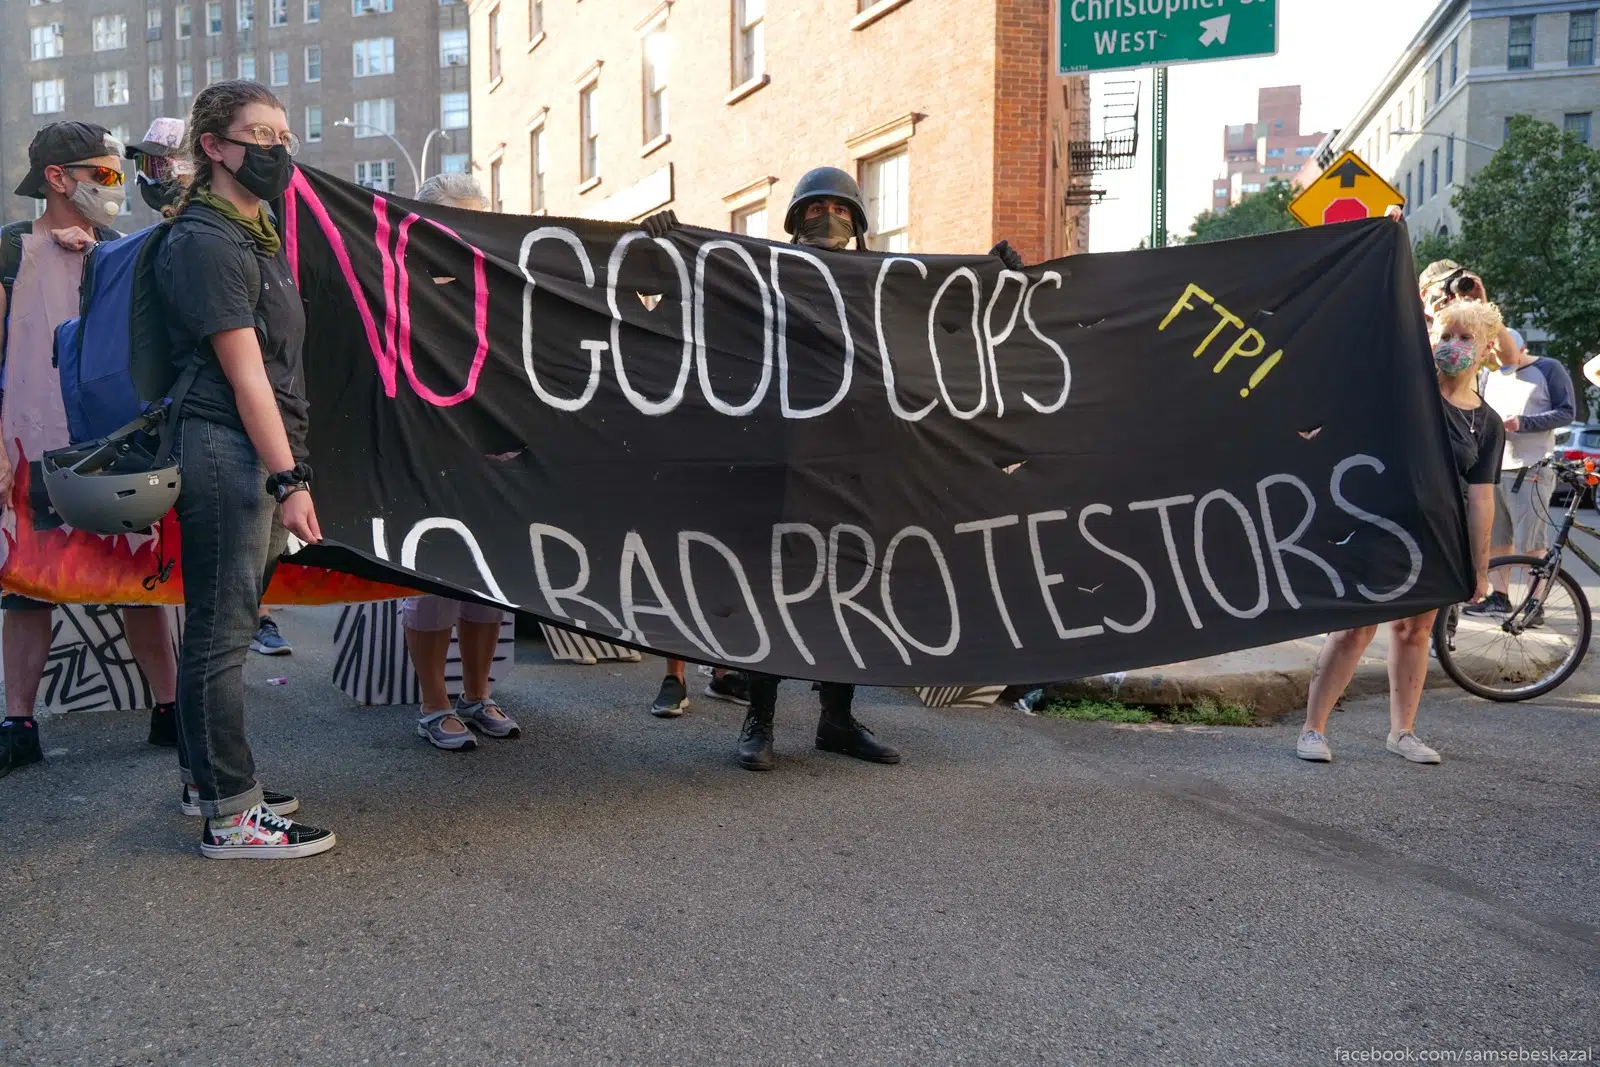 Christopher St
WEST
NO GOOD COPS
FTP!
NO BAD PROTESTORS
facebook.com/samsebeskazal